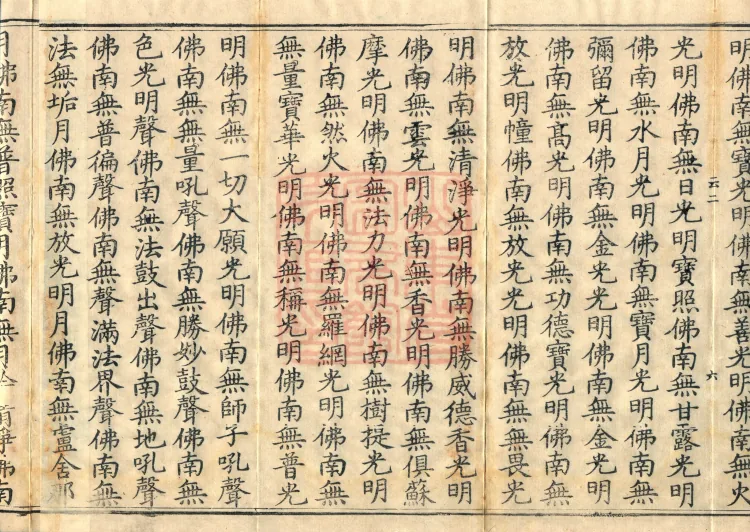 明佛南無寶光明佛南無善光明佛南無火
光明佛南無日光明寶照佛南無甘露光明
佛南無水月光明佛南無寶月光明佛南無
彌留光明佛南無金光光明佛南無金光明
佛南無高光明佛南無功德寶光明佛南無
放光明幢佛南無放光光明佛南無無畏光
明佛南無清淨光明佛南無勝威德香光明
佛南無雲光明佛南無香光明佛南無俱蘇
摩光明佛南無法力光明佛南無樹提光明
佛南無然火光明佛南無羅網光明佛南無
無量寶華光明佛南無稱光明佛南無普光
明佛南無一切大願光明佛南無師子吼聲
佛南無無量吼聲佛南無勝妙鼓聲佛南無
色光明聲佛南無法鼓出聲佛南無地吼聲
佛南無普徧聲佛南無聲滿法界聲佛南無
法無垢月佛南無放光明月佛南無盧舍那
月佛南無普照寶月佛南無月